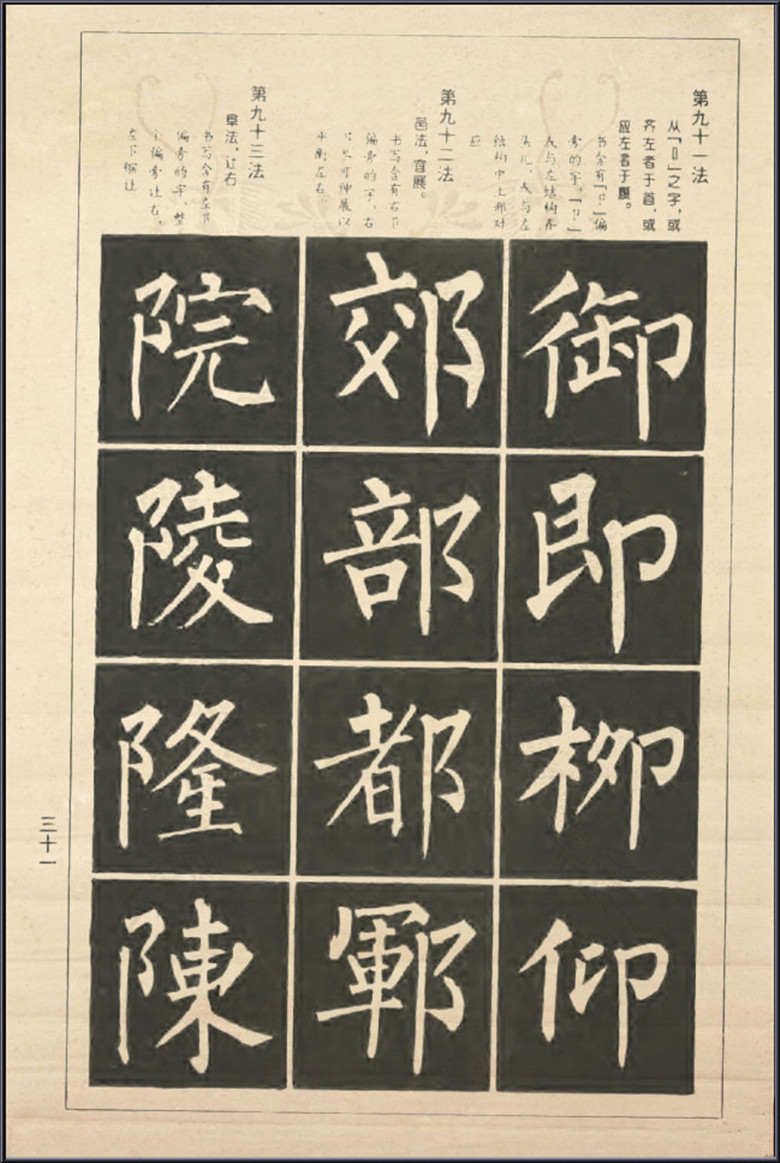 第九十一法
从「卩」之字，或
齐左者于首，或
应左者于
书写含有「卩」偏
旁的字，「卩」
或与左结构齐
头儿，或与左
结构中上部对
应
御即柳仰
第九十二法
邑法，宜展。
书写含有右阝
偏旁的字，右
阝尽可伸展以
平衡左右。
郊部都鄆
第九十三法
阜法，让右
书写含有左阝
偏旁的字，整
个偏旁让右，
左下缩让
院陵隆陳
三十一